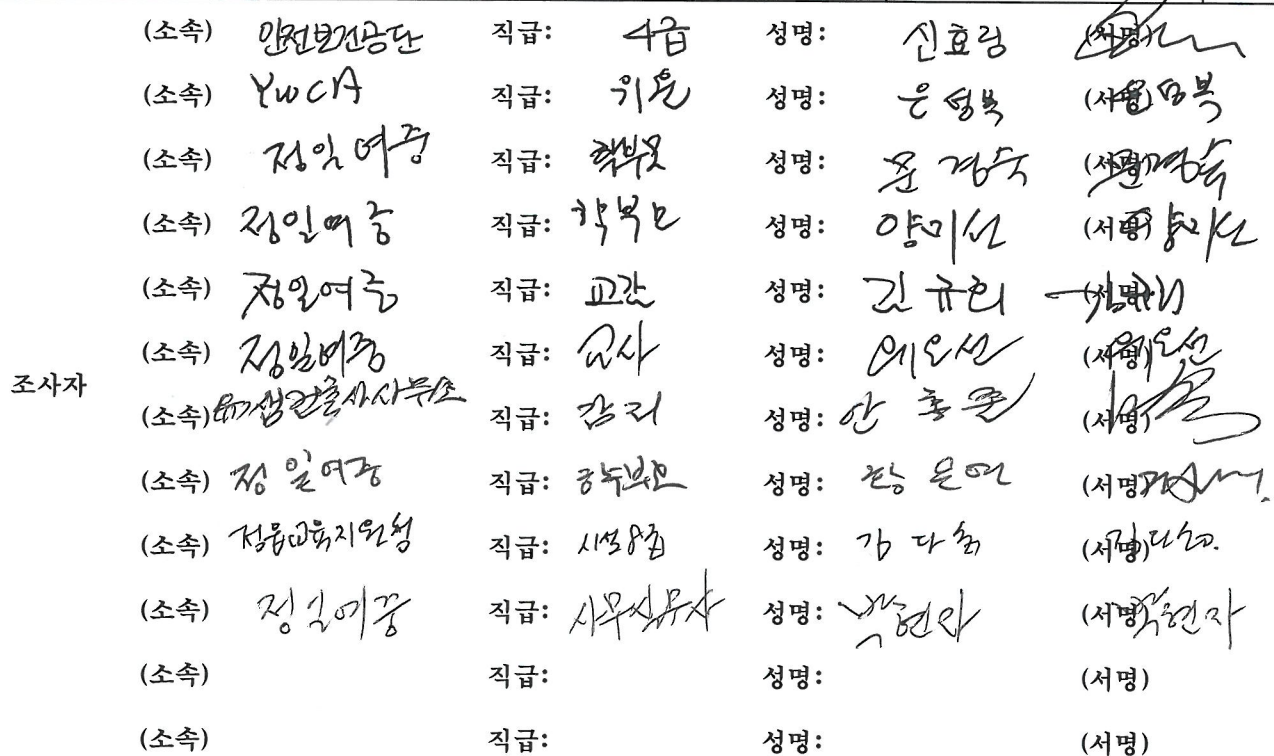 (소속) 안전보건공단 직급: 4급 성명: 신효림 (서명)
(소속) YWCA 직급: 위원 성명: 은성복 (서명)
(소속) 정일여중 직급: 학부모 성명: 문경숙 (서명) 문경숙
(소속) 정일여중 직급: 학부모 성명: 양미선 (서명) 양미선
(소속) 정일여중 직급: 교감 성명: 김규희 (서명)
(소속) 정일여중 직급: 교사 성명: (서명)
조사자
(소속) 직급: 감리 성명: 안홍준 (서명)
(소속) 정일여중 직급: 학부모 성명: (서명)
(소속) 정읍교육지원청 직급: 시설8급 성명: 김다솜 (서명) 김다솜
(소속) 정일여중 직급: 사무실무사 성명: (서명)
(소속) 직급: 성명: (서명)
(소속) 직급: 성명: (서명)